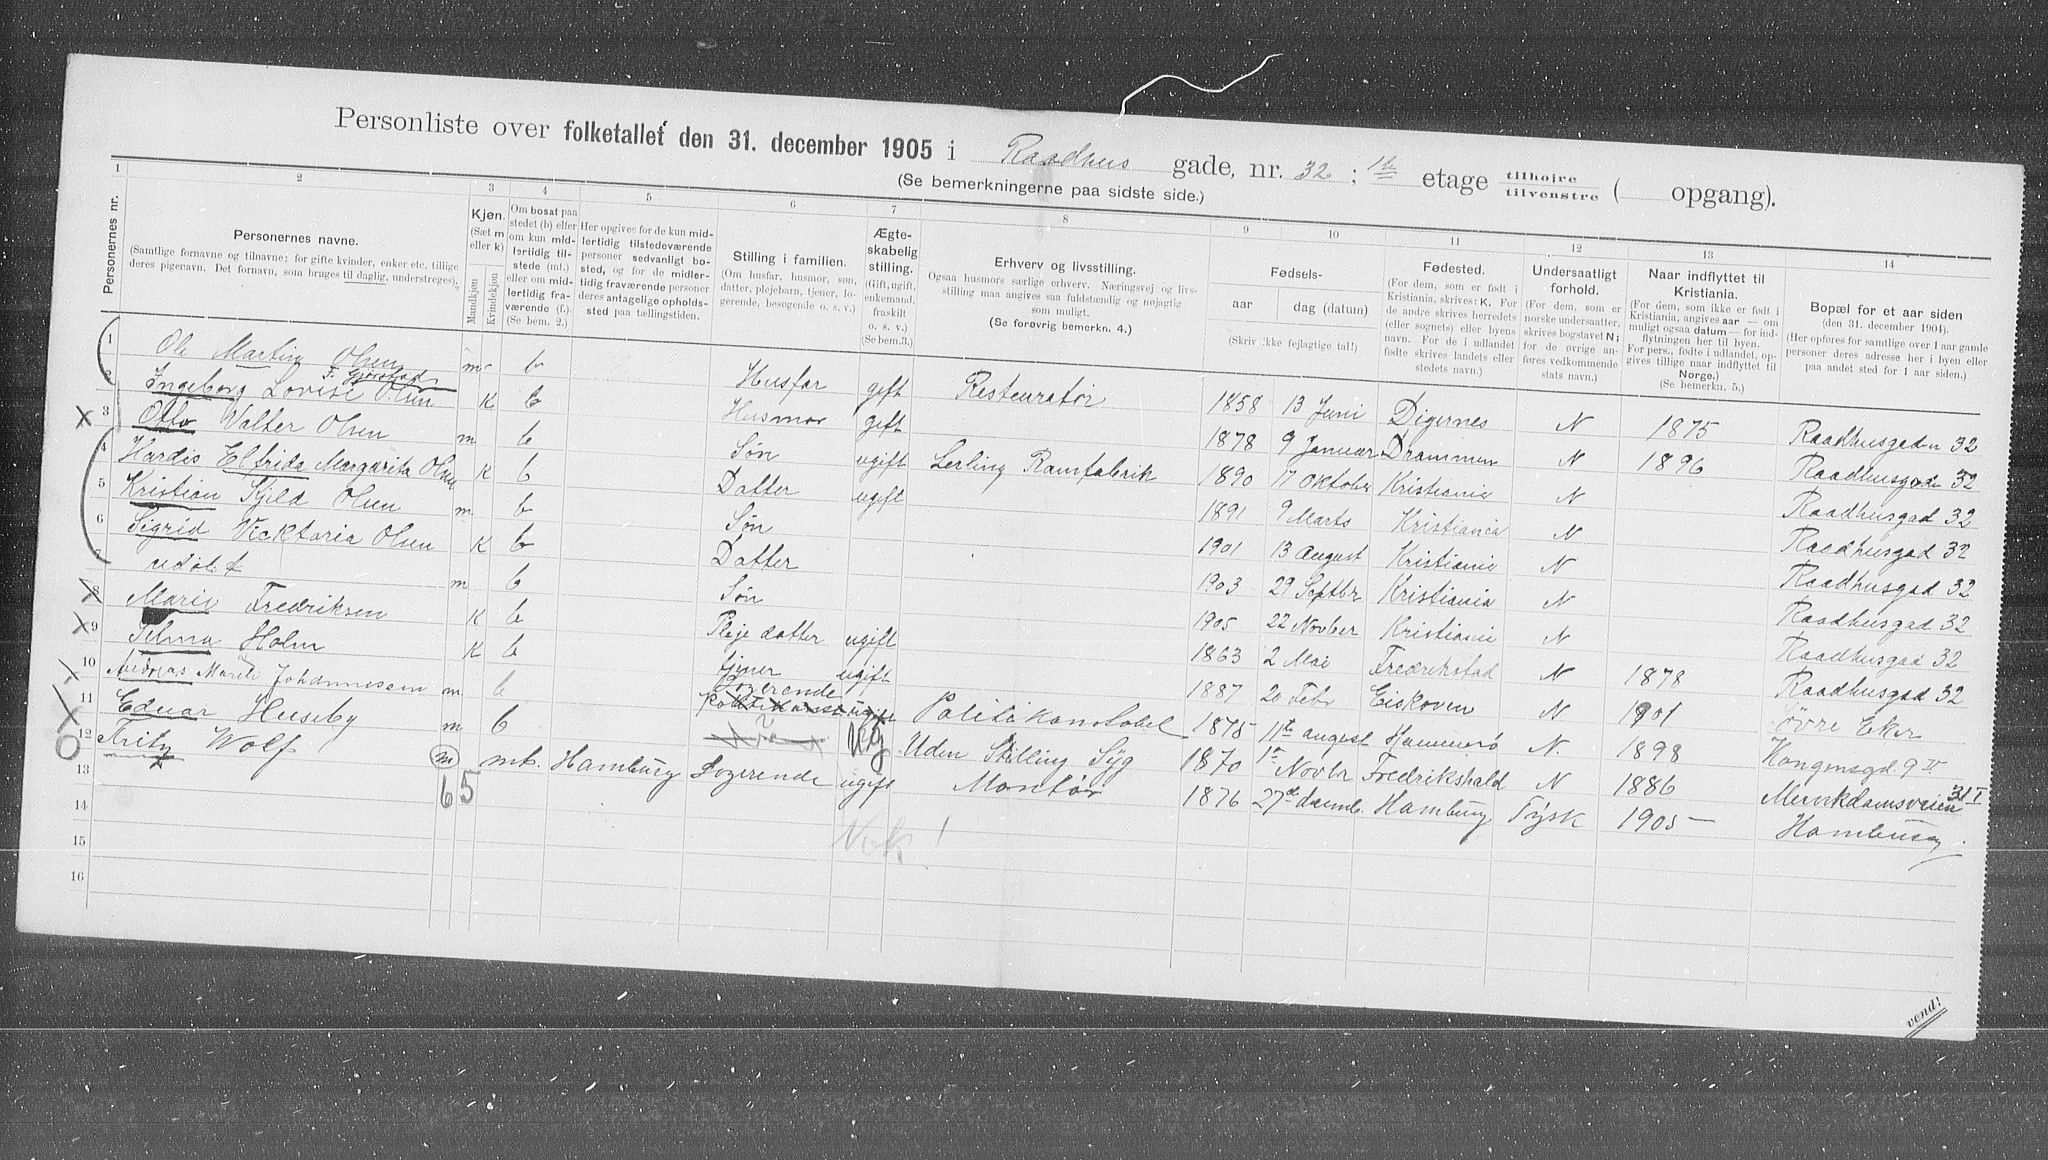 Personliste over folketallet den 31. december 1905 i Raadhus gade, nr. 32 ; 1ste etage tilhøire tilvenstre ( opgang).
(Se bemerkningerne paa sidste side.)
1 2 3 4 5 6 7 8 9 10 11 12 13 14
Personernes nr.
Personernes navne.
(Samtlige fornavne og tilnavne; for gifte kvinder, enker etc. tillige deres pigenavn. Det fornavn, som bruges til daglig, understreges).
Kjøn.
(Sæt m eller k)
Mandkjøn
Kvindekjøn
Om bosat paa stedet (b) eller om kun midlertidig tilstede (mt.) eller om midlertidig fraværende (f.).
(Se bem. 2.)
Her opgives for de kun midlertidig tilstedeværende personer sedvanligt bosted, og for de midlertidig fraværende personer deres antagelige opholdssted paa tællingstiden.
Stilling i familien.
(Om husfar, husmor, søn, datter, plejebarn, tjener, logerende, besøgende o. s. v.)
Ægteskabelig stilling.
(Gift, ugift, enkemand, fraskilt o. s. v.)
(Se bem.3.)
Erhverv og livsstilling.
Ogsaa husmors særlige erhverv. Næringsvej og livsstilling maa angives saa fuldstændig og nøjagtig som muligt.
(Se forøvrig bemerkn. 4.)
Fødsels-
aar
dag (datum)
(Skriv ikke fejlagtige tal!)
Fødested.
(For dem, som er født i Kristiania, skrives: K. For de andre skrives herredets (eller sognets) eller byens navn. For de i udlandet fødte skrives landets eller stedets navn.)
Undersaatligt forhold.
(For dem, som er norske undersaatter, skrives bogstavet N; for de øvrige anføres vedkommende stats navn.)
Naar indflyttet til Kristiania.
(For dem, som ikke er født i Kristiania, angives aar — om muligt ogsaa datum — for indflytningen her til byen. For pers., fødte i udlandet, opgives tillige naar indflyttet til Norge.)
(Se bemerkn. 5.)
Bopæl for et aar siden
(den 31. december 1904).
(Her opføres for samtlige over 1 aar gamle personer deres adresse her i byen eller paa andet sted for 1 aar siden.)
1 Ole Martin Olsen m b Husfar gift Restauratør 1858 13 Juni Digernes N 1875 Raadhusgaden 32
f. Gjørstad
2 Ingeborg Lovise Olsen K b Husmor gift 1878 9 Januar Drammen N 1896 Raadhusgaden 32
3 Otto Valter Olsen m b Søn ugift Lerling Ramfabrik 1890 17 Oktober Kristiania N Raadhusgad 32
4 Hardis Elfrida Margarita Olsen K b Datter ugift 1891 9 Marts Kristiania N Raadhusgad 32
5 Kristian Kjeld Olsen m b Søn 1901 13 August Kristiania N Raadhusgad 32
6 Sigrid Vicktoria Olsen K b Datter 1903 29 Septbr Kristiania N Raadhusgad 32
7 udøbt m b Søn 1905 22 Novber Kristiania N Raadhusgad 32
8 Marie Fredriksen K b Pleje datter ugift 1863 2 Mai Fredrikstad N 1878 Raadhusgad 32
9 Selma Holm K b tjner ugift 1887 20 Febr Eiskoven N 1901 Øvre Eker
10 Andreas Johannesen m b Logerende ugift Politikonstabel 1875 11te august Hammerø N 1898 Kongensgd. 9 IV
11 Edvar Huseby m b ug Uden Stilling Syg 1870 1ste Novbr Fredrikshald N 1886 Munkdamsveien 31 I
12 Fritz Wolf m mt. Hamburg Logerende ugift Montør 1876 27de decemb. Hamburg Tysk 1905 — Hamburg.
13 6 5
14 Nok!
15
16
vend!